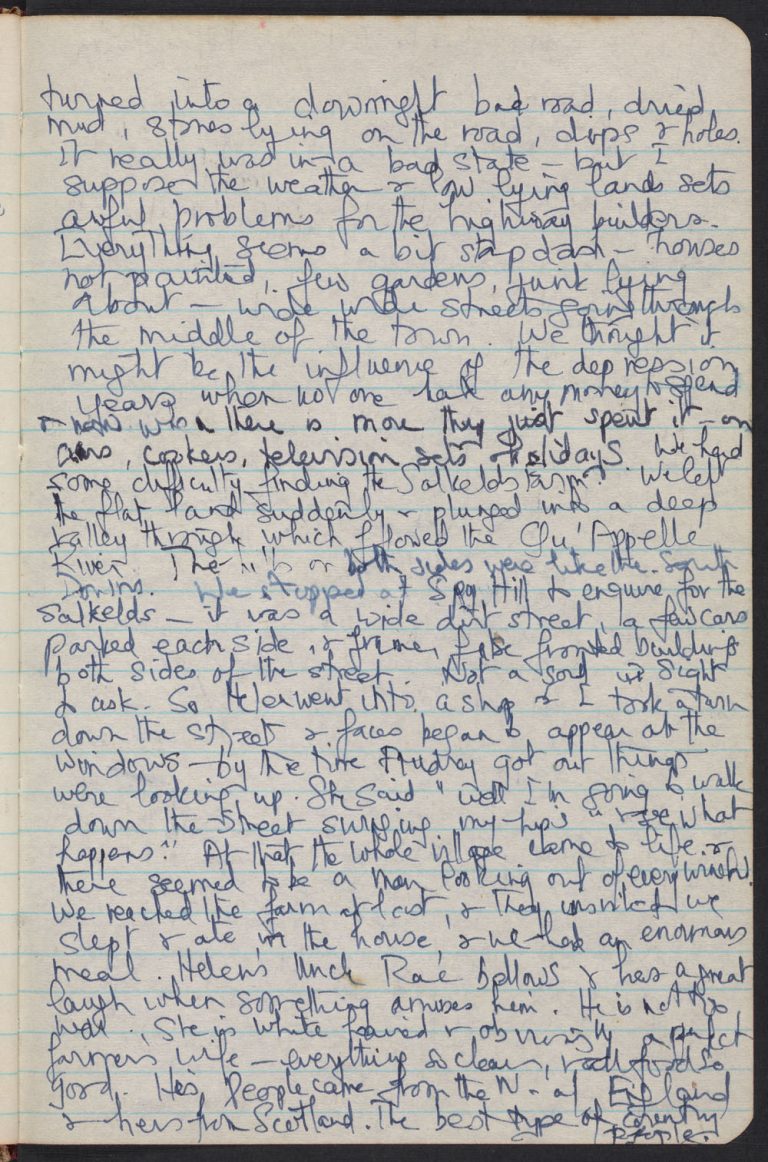 turned into a downright bad road, dried
mud, stones lying on the road, dips & holes.
It really was in a bad state – but I
suppose the weather & low lying lands sets
awful problems for the highway builders.
Everything seems a bit slapdash – houses
not painted, few gardens, junk lying
about – wide wide streets going through
the middle of the town. We thought it
might be the influence of the depression
years when no one had any money to spend
& now when there is more they just spent it – on
cars, cookers, television sets & holidays. We had
some difficulty finding the Salkelds Farm. We left
the flat land suddenly & plunged into a deep
valley through which flowed the Qu'Appelle
River. The hills on both sides were like the South
Downs. We stopped at Spy Hill to enquire for the
Salkelds – it was a wide dirt street, a few cars
parked each side, & frame, false fronted buildings
both sides of the street. Not a soul in sight
to ask. So Helen went into a shop & I took a turn
down the street & faces began to appear at the
windows – by the time Audrey got out things
were looking up. She said "well I'm going to walk
down the street swinging my hips" & see what
happens." At that, the whole village came to life &
there seemed to be a man looking out of every window.
We reached the farm at last, & they insisted we
slept & ate in the house, & we had an enormous
meal. Helens Uncle Rae bellows & has a great
laugh when something amuses him. He is not too
well. She is white haired & obviously a perfect
farmers wife – everything so clean, & food so
good. His people came from the N. of England
& hers from Scotland. The best type of country
people.